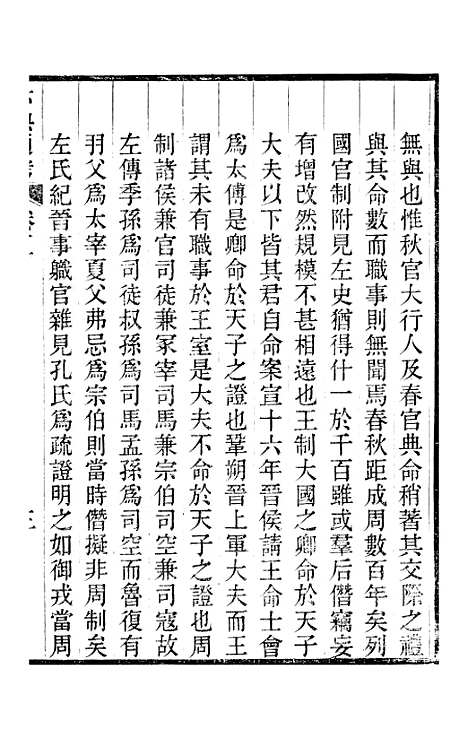 無與也惟秋官大行人及春官典命稍著其交際之禮
與其命數而職事則無聞焉春秋距成周數百年矣列
國官制附見左史猶得什一於千百雖或羣后僭竊妄
有增改然規模不甚相遠也王制大國之卿命於天子
大夫以下皆其君自命案宣十六年晉侯請王命士會
爲太傅是卿命於天子之證也鞏朔晉上軍大夫而王
謂其未有職事於王室是大夫不命於天子之證也周
制諸侯兼官司徒兼冢宰司馬兼宗伯司空兼司寇故
左傳季孫爲司徒叔孫爲司馬孟孫爲司空而魯復有
羽父爲太宰夏父弗忌爲宗伯則當時僭擬非周制矣
左氏紀晉事職官雜見孔氏爲疏證明之如御戎當周